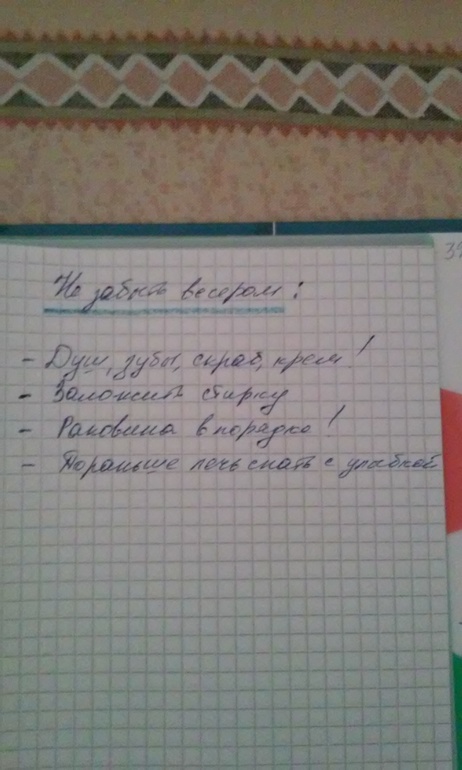 Не забыть вечером:
- Душ, зубы, скраб, крем!
- Заложить стирку
- Раковина в порядке!
- Пораньше лечь спать с улыбкой